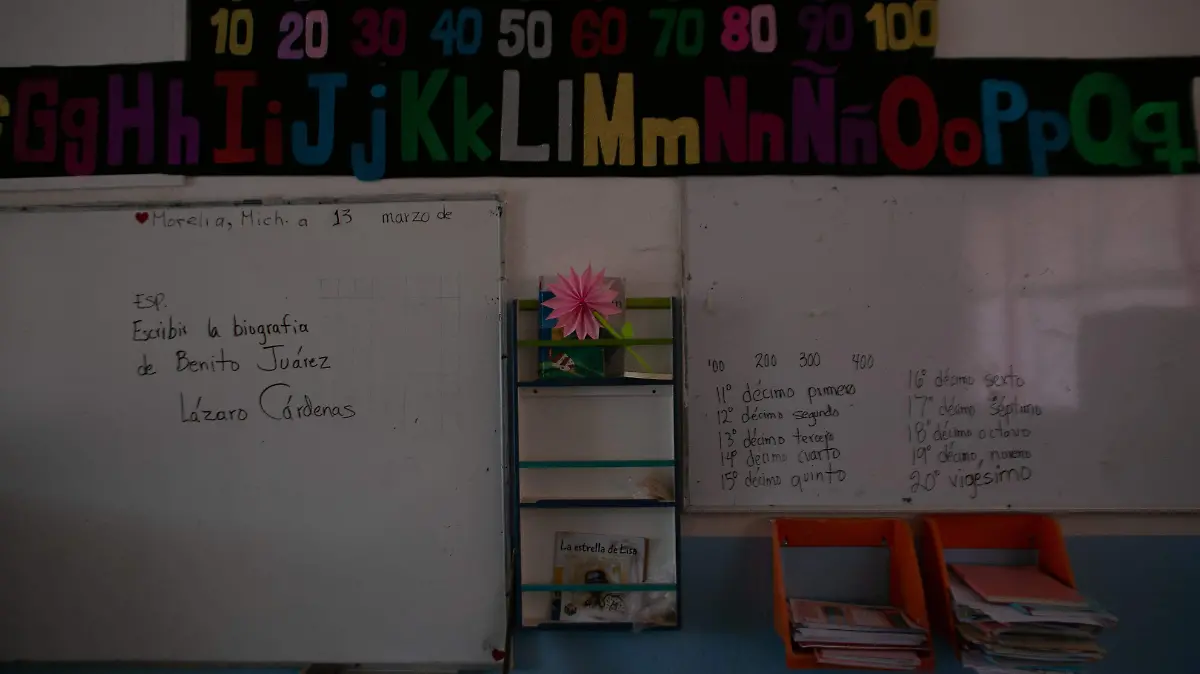 10 20 30 40 50 60 70 80 90 100
Gg Hh Ii Jj Kk Ll Mm Nn Ññ Oo Pp Qq
Morelia, Mich. a 13 marzo de
ESP.
Escribir la biografia
de Benito Juárez
Lázaro Cárdenas
La estrella de Lisa
100 200 300 400
11° décimo primero
12° décimo segundo
13° décimo tercero
14° decimo cuarto
15° décimo quinto
16° décimo sexto
17° décimo séptimo
18° décimo octavo
19° décimo, noveno
20° vigésimo